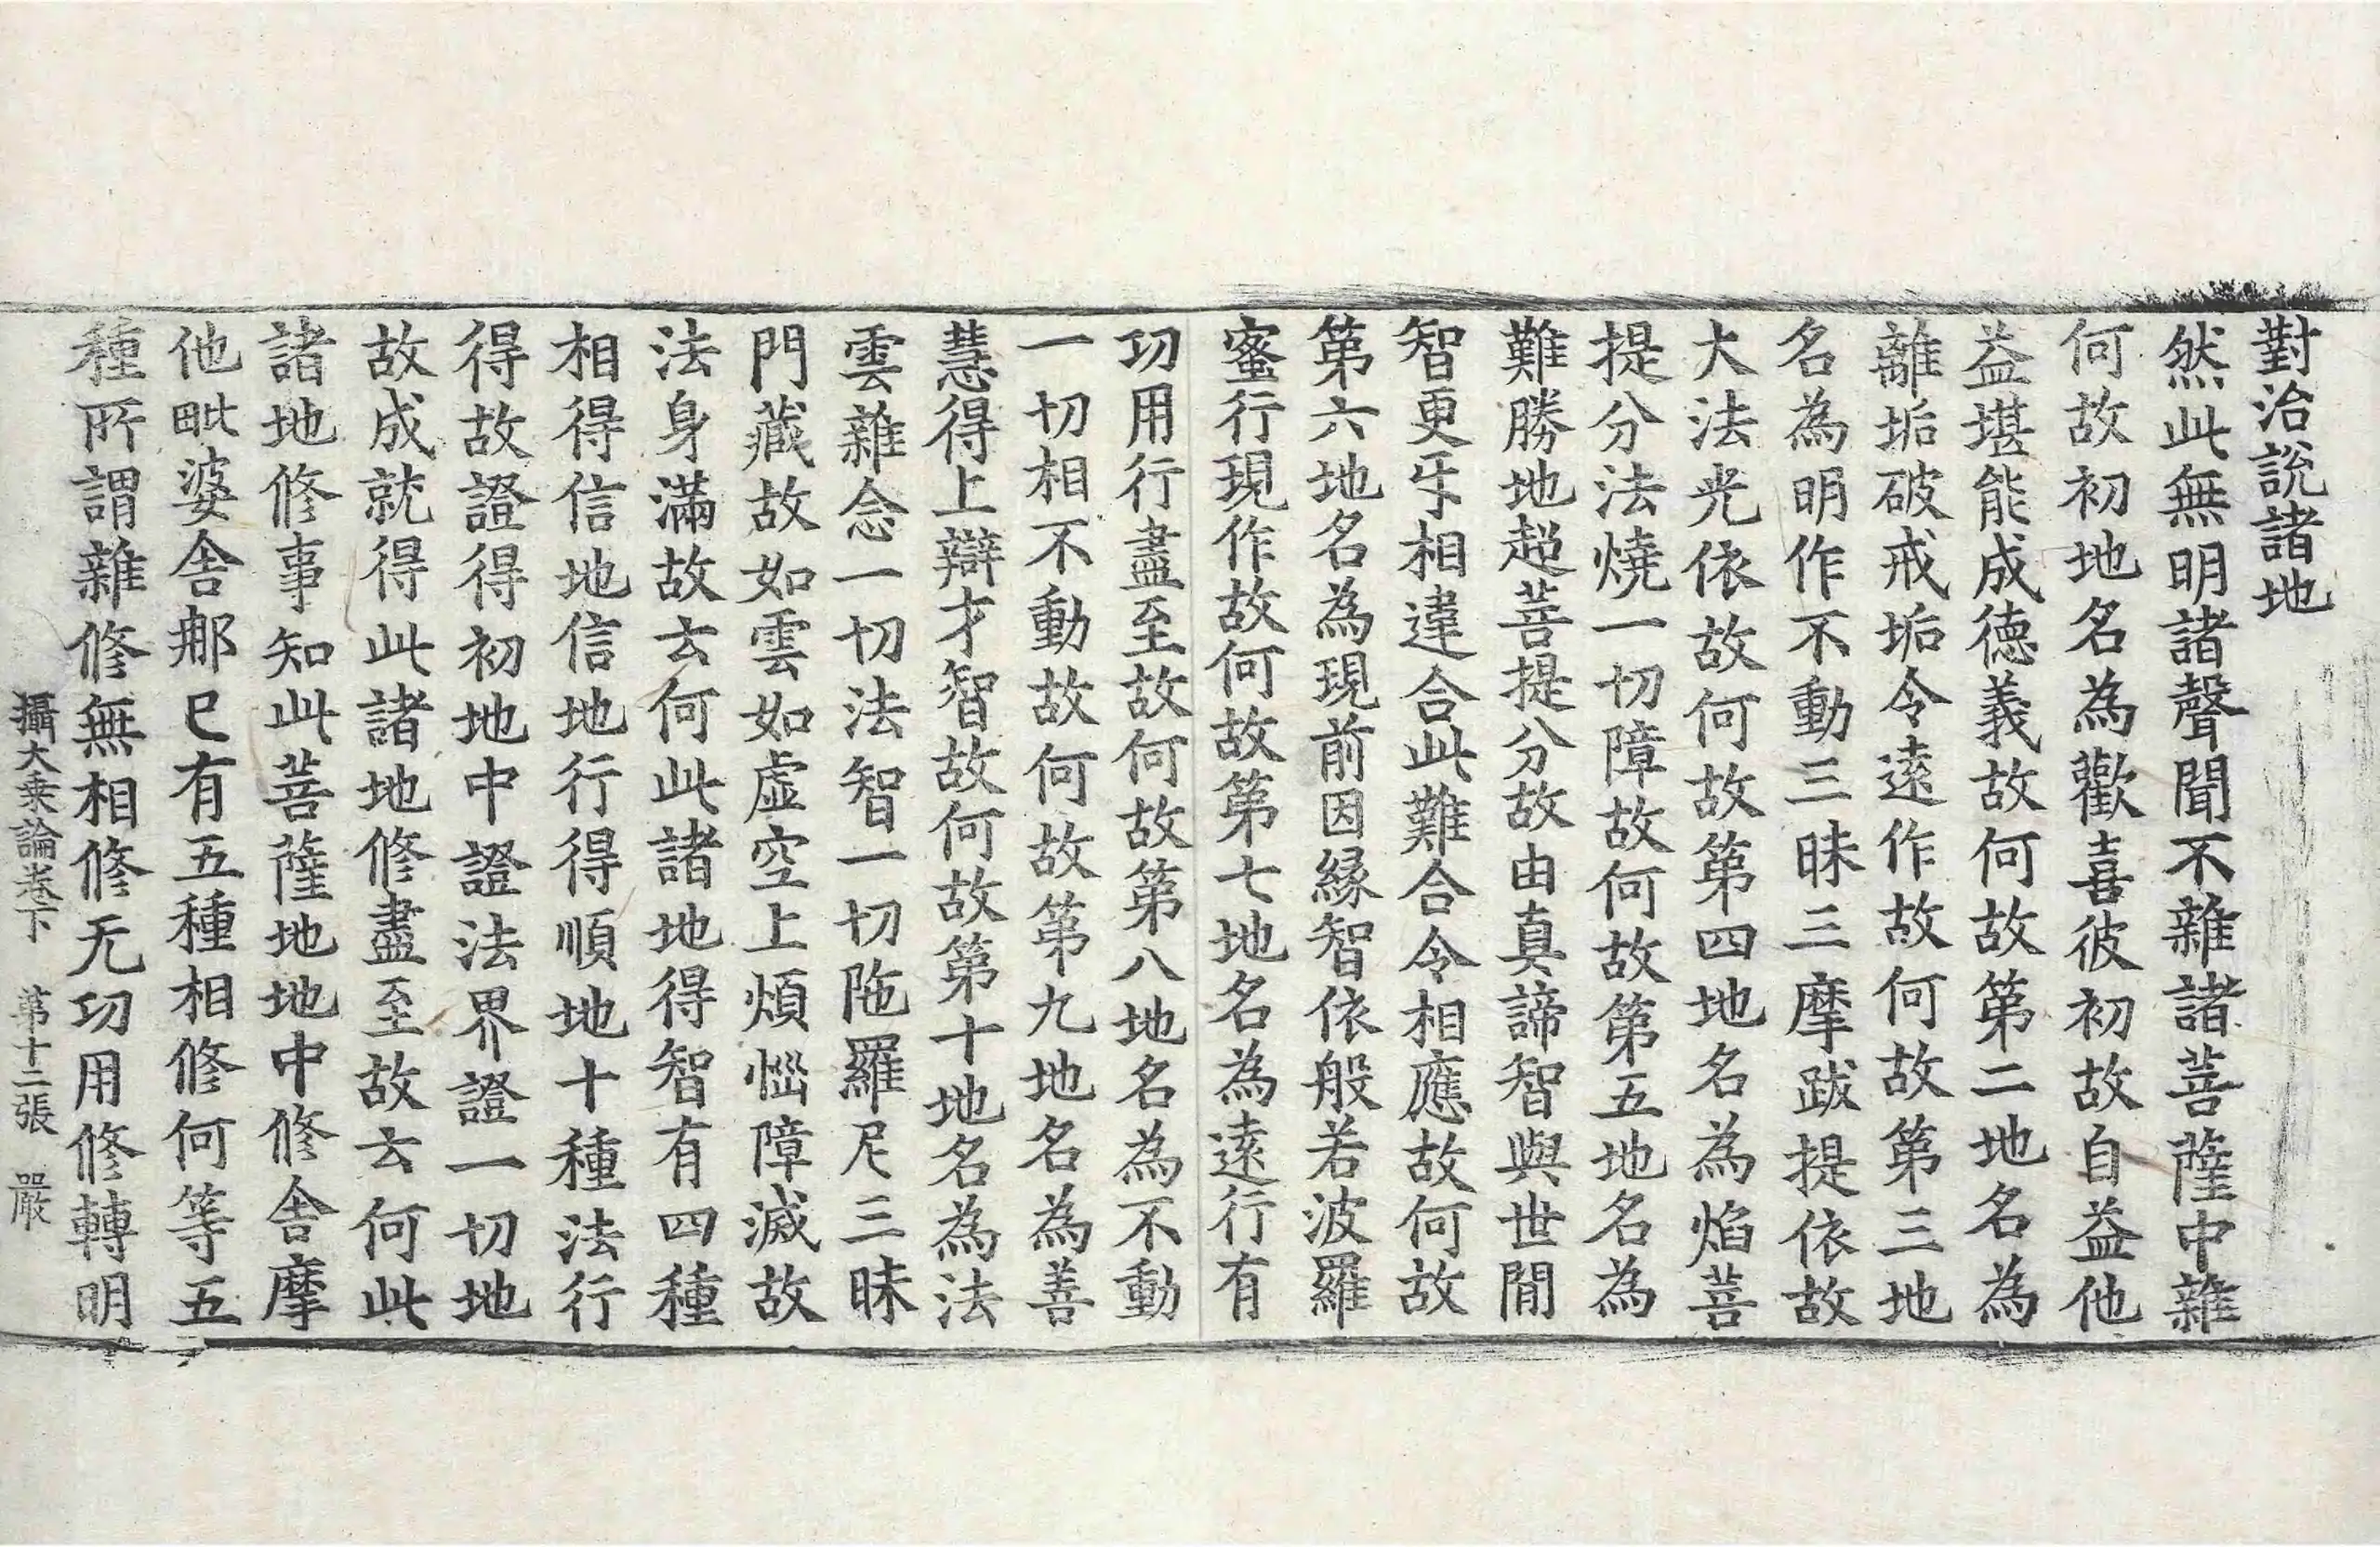 對治說諸地
然此無明諸聲聞不雜諸菩薩中雜
何故初地名為歡喜彼初故自益他
益堪能成德義故何故第二地名為
離垢破戒垢令遠作故何故第三地
名為明作不動三昧三摩跋提依故
大法光依故何故第四地名為焰菩
提分法燒一切障故何故第五地名為
難勝地超菩提分故由真諦智與世間
智更㸦相違合此難合令相應故何故
第六地名為現前因緣智依般若波羅
蜜行現作故何故第七地名為遠行有
功用行盡至故何故第八地名為不動
一切相不動故何故第九地名為善
慧得上辯才智故何故第十地名為法
雲雜念一切法智一切陁羅尼三昧
門藏故如雲如虛空上煩惱障滅故
法身滿故云何此諸地得智有四種
相得信地信地行得順地十種法行
得故證得初地中證法界證一切地
故成就得此諸地修盡至故云何此
諸地修事知此菩薩地地中修舍摩
他毗婆舍那已有五種相修何等五
種所謂雜修無相修无功用修轉明
攝大乘論卷下 第十二張 嚴